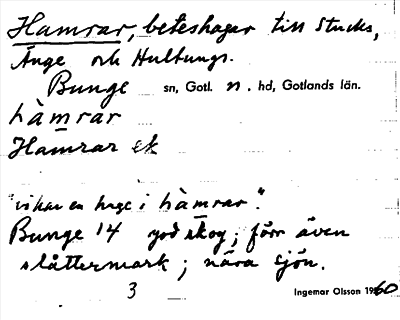 Hamrar, beteshagar till Stucks,
Änge och Hultungs.
Bunge sn, Gotl. n. hd, Gotlands län.
hàmrar
Hamrar ek
"vi har en hage i hàmrar".
Bunge 14 god skog; förr även
slåttermark; nära sjön.
3 Ingemar Olsson 1960